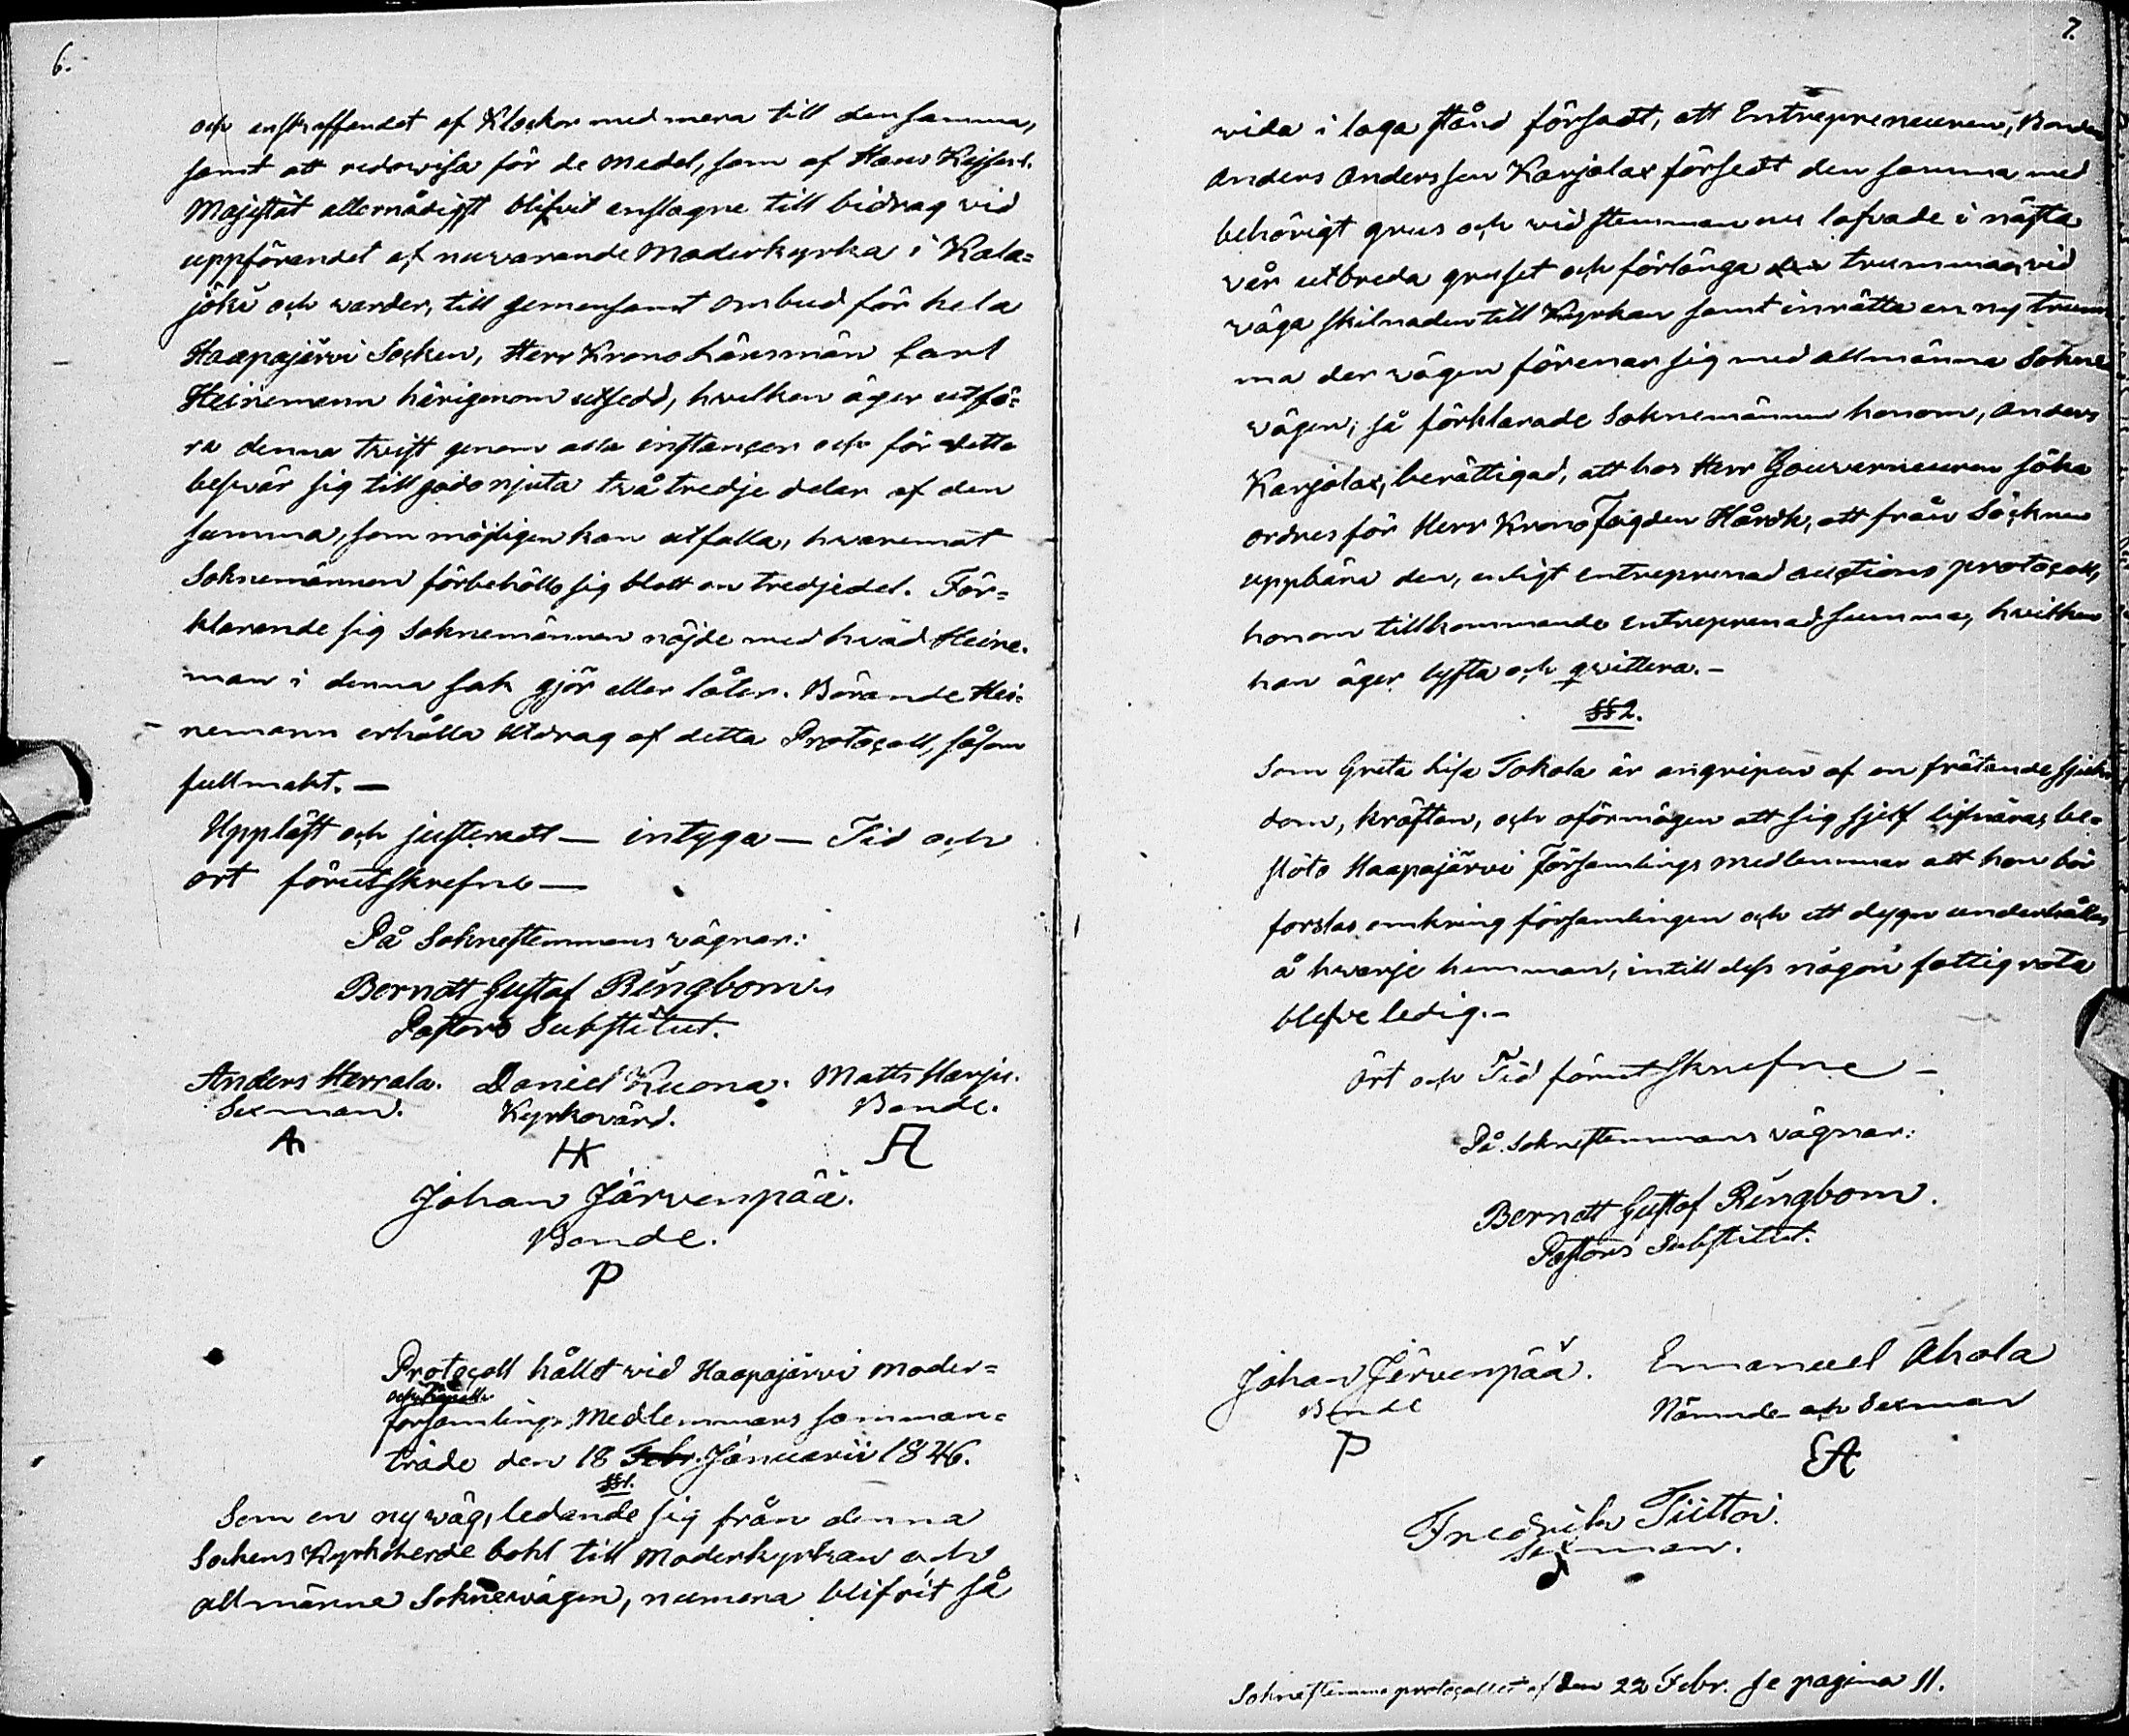 6.
och anskaffandet af Klockor med mera till densamma,
samt att redowisa för de medel, som af Hans Kejserl.
Majestät allernådigst blifvit anslagne till bidrag vid
uppförandet af nuvarande Moderkyrka i Kala=
joki och warder, till gemensamt ombud för hela
Haapajärvi Socken, Herr Krono Länsman Carl
Heinemann härigenom utsedd, hvilken äger utfö=
ra denna twist genom alla instanser och för detta
beswär sig till godo njuta två tredje delar af den
summa, som möjligen kan utfalla, hwaremot
Soknemännen förbehölls sig blott en tredjedel. För=
klarande sig Soknemännen nöjde med hvad Heine=
man i denna sak gjör eller låter. Börande Hei=
nemann erhålla Utdrag af detta Protocoll, såsom
fullmakt. —
Uppläst och justeradt — intyga — Tid och
ort förutskrefne —
På Soknestemmans vägnar:
Berndt Gustaf Ringbom
Pastors Substitut.
Anders Herrala. Daniel Kuona. Matts Harju.
Sexman. Kyrkovärd. Bonde.
AH HK
Johan Järvenpää.
Bonde.
P
Protocoll hållet vid Haapajärvi Moder=
församlings Medlemmars samman=
träde den 18 Febr. Januarii 1846.
§§1.
Som en ny wäg, ledande sig från denna
Sockens Kyrkoherde bohl till Moderkyrkan och
allmänna Soknewägen, numera blifvit så
7.
vida i laga stånd försadt, att Entrepreneuren, Bonden
Anders Andersson Karjalax försedt den samma med
behörigt grus och vid stemman nu lofvade i nästa
vår utbreda gruset och förlänga den trumman, vid
wäga skilnaden till Kyrkan samt inrätta en ny trum
ma der wägen förenar sig med allmänna Sokne
wägen; så förklarade Soknemännen honom, Anders
Karjalax, berättigad, att hos Herr Gouverneuren söka
ordres för Herr Krono Fogden Hårdh, att från Socknen
uppbära den, enligt entreprenad auctions protocoll,
honom tillkommande entreprenadsumma, hvilken
han äger lyfta och qwittera. —
§§2.
Som Greta Lisa Tokola är angripen af en frätande sjuk
dom, kräftan, och oförmögen att sig sjelf lifnära, be=
slöto Haapajärvi Församlings medlemmar att hon bör
forslas omkring församlingen och ett dygn underhållas
å hwarje hemman, intill dess någon fattig rota
blefve ledig. —
Ort och Tid förutskrefne —
På Soknestemmans vägnar:
Berndt Gustaf Ringbom.
Pastors Substitut.
Johan Järvenpää. Emanuel Ahola
Bonde Nämnde- och Sexman
P EA
Fredrik Tiitto.
Sexman.
Soknestemma protocollet af den 22 Febr. se pagina 11.